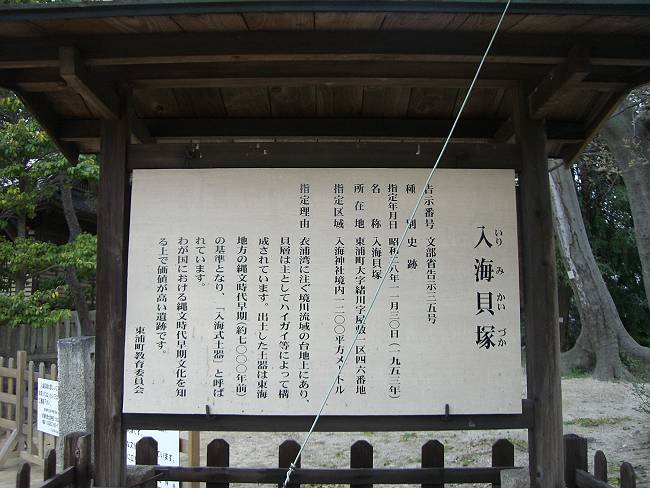 入海貝塚
いりみかいづか
告示番号 文部省告示三五号
種別 史跡
指定年月日 昭和二八年一一月三〇日(一九五三年)
名称 入海貝塚
所在地 東浦町大字緒川字屋敷一区四六番地
指定区域 入海神社境内一二〇〇平方メートル
指定理由 衣浦湾に注ぐ境川流域の台地上にあり、
貝層は主としてハイガイ等によって構
成されています。出土した土器は東海
地方の縄文時代早期(約七〇〇〇年前)
の基準となり、「入海式土器」と呼ば
れています。
わが国における縄文時代早期文化を知
る上で価値が高い遺跡です。
東浦町教育委員会